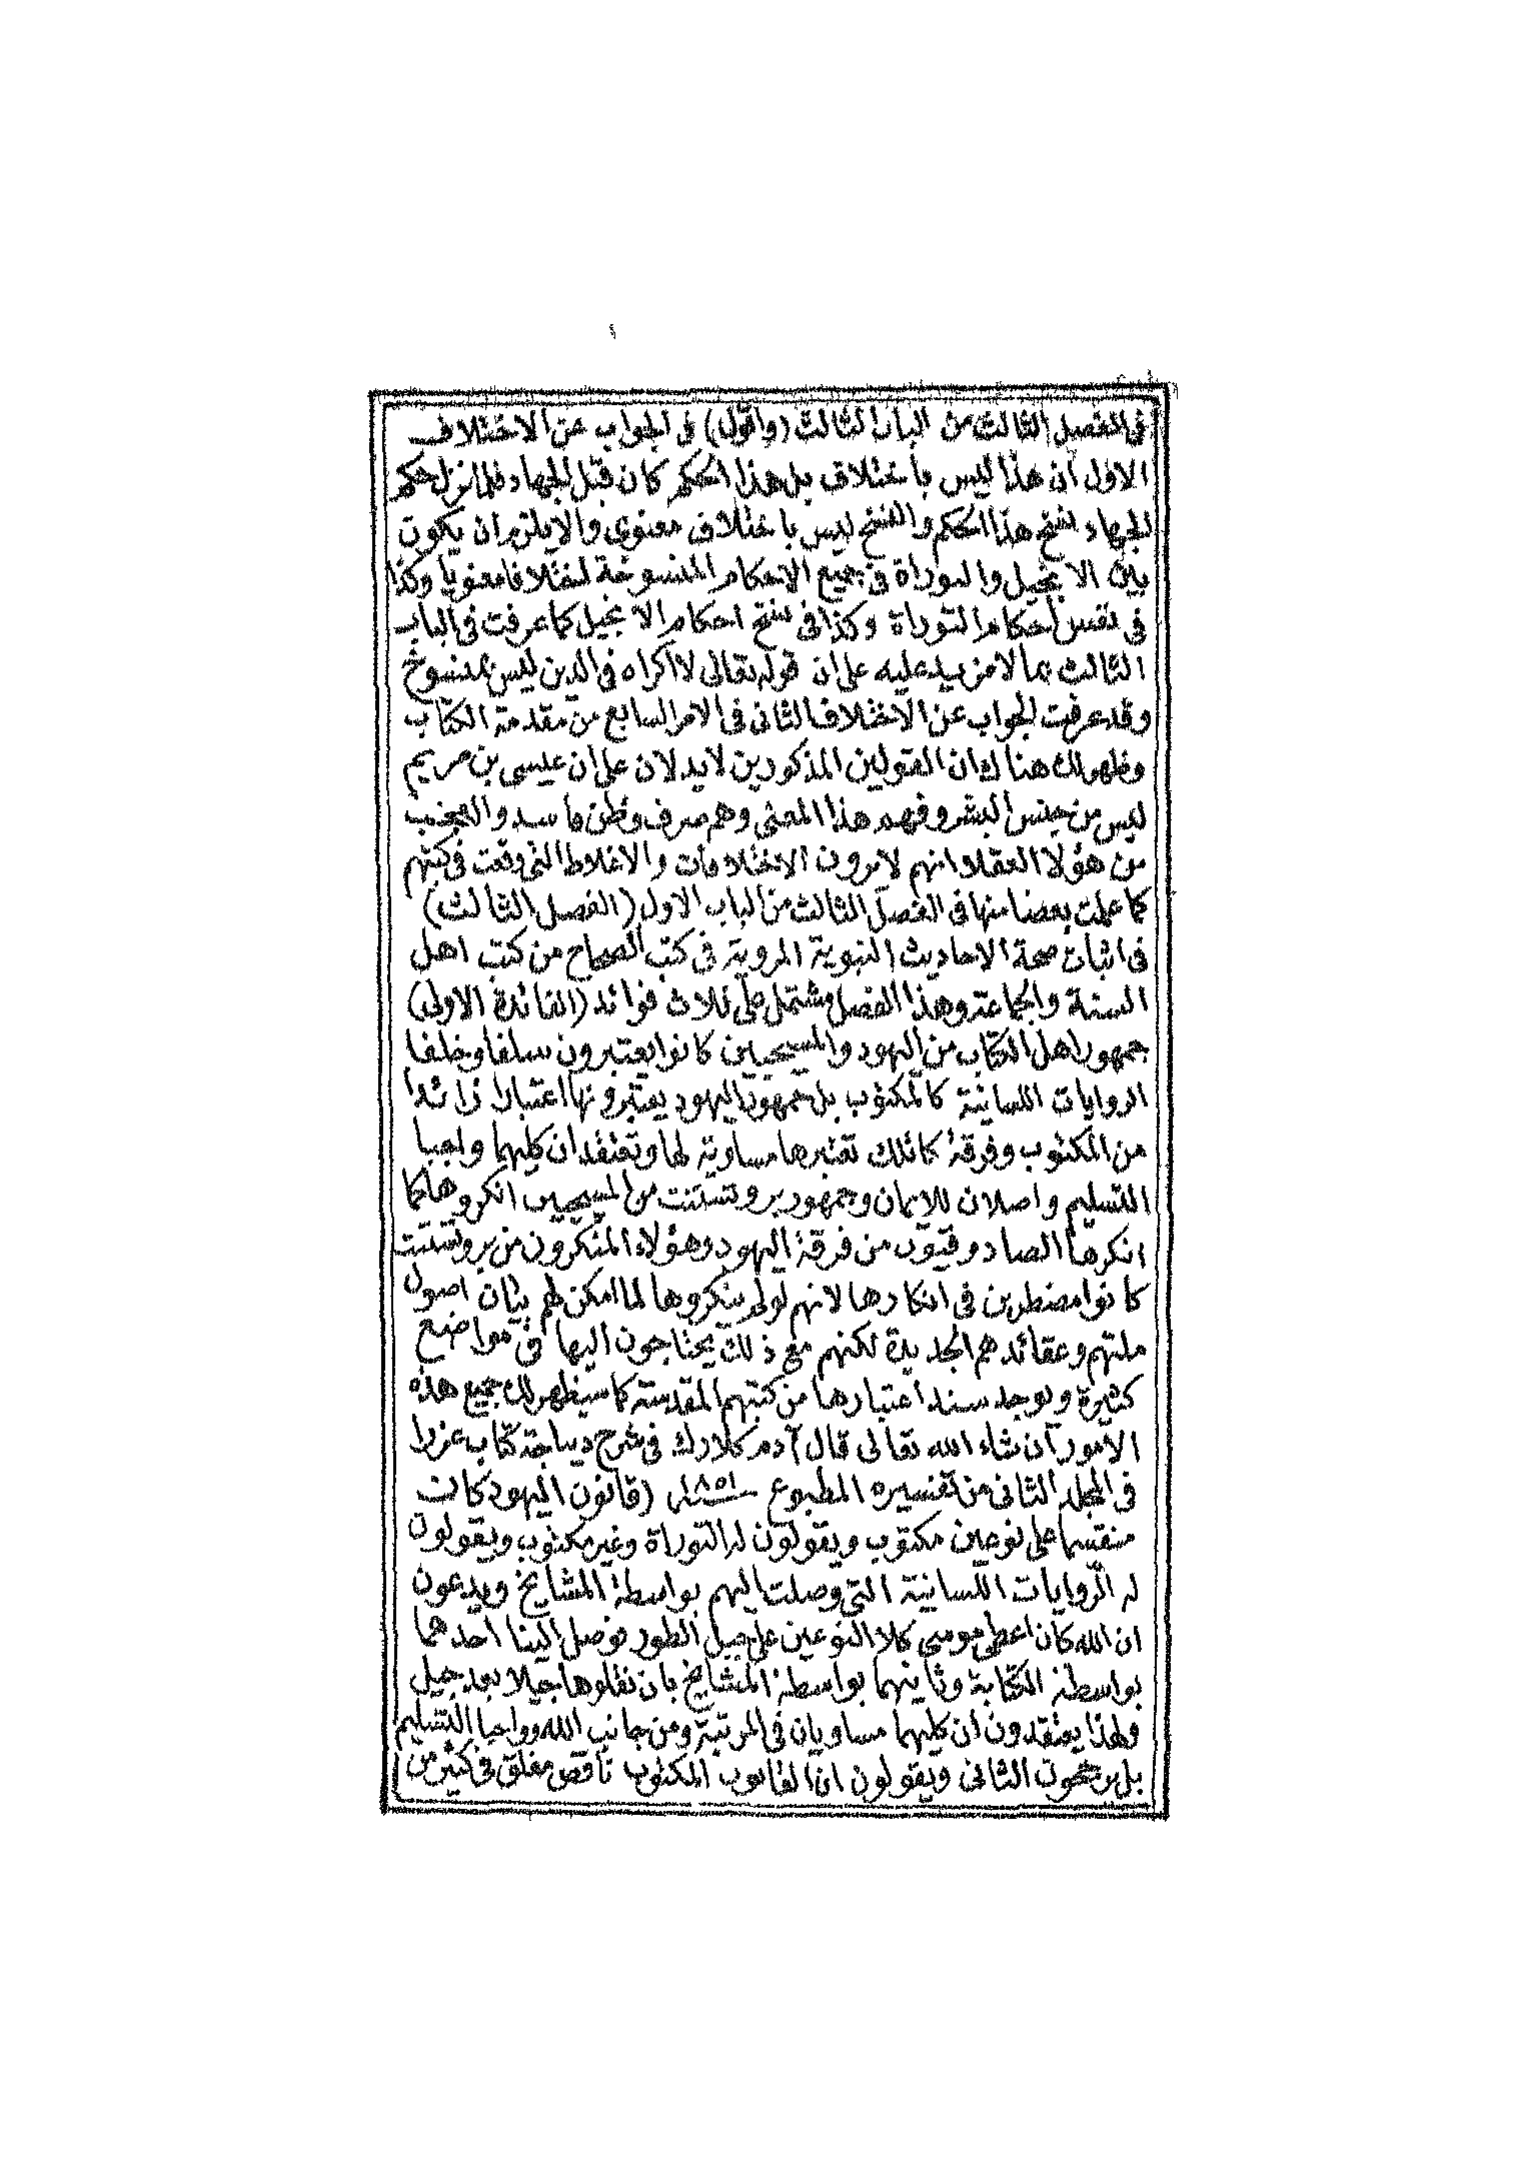 فى الفصل الثالث من الباب الثالث (واقول) فى الجواب عن الاختلاف
الاول ان هذا ليس باختلاف بل هذا الحكم كان قبل الجهاد فلما نزل حكم
الجهاد نسخ هذا الحكم والنسخ ليس باختلاف معنوى والا يلزم ان يكون
بين الانجيل والتوراة فى جميع الاحكام المنسوخة اختلافا معنويا وكذا
فى نفس احكام التوراة وكذا فى نسخ احكام الانجيل كما عرفت فى الباب
الثالث بما لا مزيد عليه على ان قوله تعالى لا اكراه فى الدين ليس بمنسوخ
وقد عرفت الجواب عن الاختلاف الثانى فى الامر السابع من مقدمة الكتاب
وظهر لك هناك ان القولين المذكورين لا يدلان على ان عيسى بن مريم
ليس من جنس البشر وفهم هذا المعنى وهم صرف وظن فاسد والعجب
من هؤلا العقلا انهم لا يرون الاختلافات والاغلاط التى وقعت فى كتبهم
كما علمت بعضا منها فى الفصل الثالث من الباب الاول (الفصل الثالث)
فى اثبات صحة الاحاديث النبوية المروية فى كتب الصحاح من كتب اهل
السنة والجماعة وهذا الفصل مشتمل على ثلاث فوائد (الفائدة الاولى)
جمهور اهل الكتاب من اليهود والمسيحيين كانوا يعتبرون سلفا وخلفا
الروايات اللسانية كالمكتوب بل جمهور اليهود يعتبرونها اعتبارا زائدا
من المكتوب وفرقة كاتلك تعتبرها مساوية لها وتعتقد ان كليهما واجبا
التسليم واصلان للايمان وجمهور بروتستنت من المسيحيين انكروها كما
انكرها الصادوقيون من فرقة اليهود وهؤلاء المنكرون من بروتستنت
كانوا مضطرين فى انكارها لانهم لو لم ينكروها لما امكن لهم بيان اصول
ملتهم وعقائدهم الجديدة لكنهم مع ذلك يحتاجون اليها فى مواضع
كثيرة ويوجد سند اعتبارها من كتبهم المقدسة كما سيظهر لك جميع هذه
الامور ان شاء الله تعالى قال آدم كلارك فى شرح ديباجة كتاب عزرا
فى المجلد الثانى من تفسيره المطبوع سنة ١٨٥١ (قانون اليهود كان
منقسما على نوعين مكتوب ويقولون له التوراة وغير مكتوب ويقولون
له الروايات اللسانية التى وصلت اليهم بواسطة المشايخ ويدعون
ان الله كان اعطى موسى كلا النوعين على جبل الطور فوصل الينا احدهما
بواسطة الكتابة وثانيهما بواسطة المشايخ بان نقلوها جيلا بعد جيل
ولهذا يعتقدون ان كليهما مساويان فى المرتبة ومن جانب الله وواجبا التسليم
بل يرجحون الثانى ويقولون ان القانون المكتوب ناقص مغلق فى كثير من